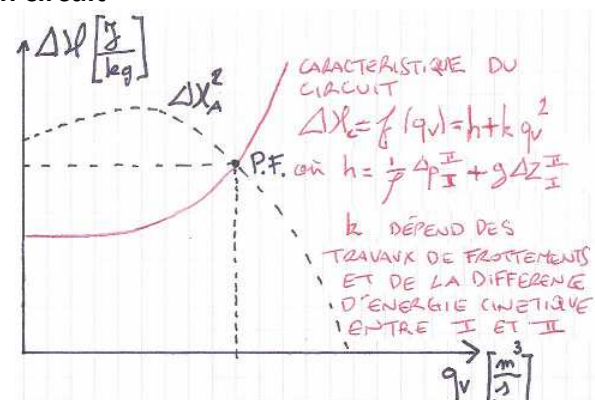 ΔH [J/kg]
ΔH_A^2
CARACTERISTIQUE DU
CIRCUIT
ΔH_c = f(qv) = h + k qv^2
P.F.
où h = 1/ρ Δp_I^II + g ΔZ_I^II
k DÉPEND DES
TRAVAUX DE FROTTEMENTS
ET DE LA DIFFERENCE
D'ENERGIE CINETIQUE
ENTRE I ET II
qv [m^3/s]